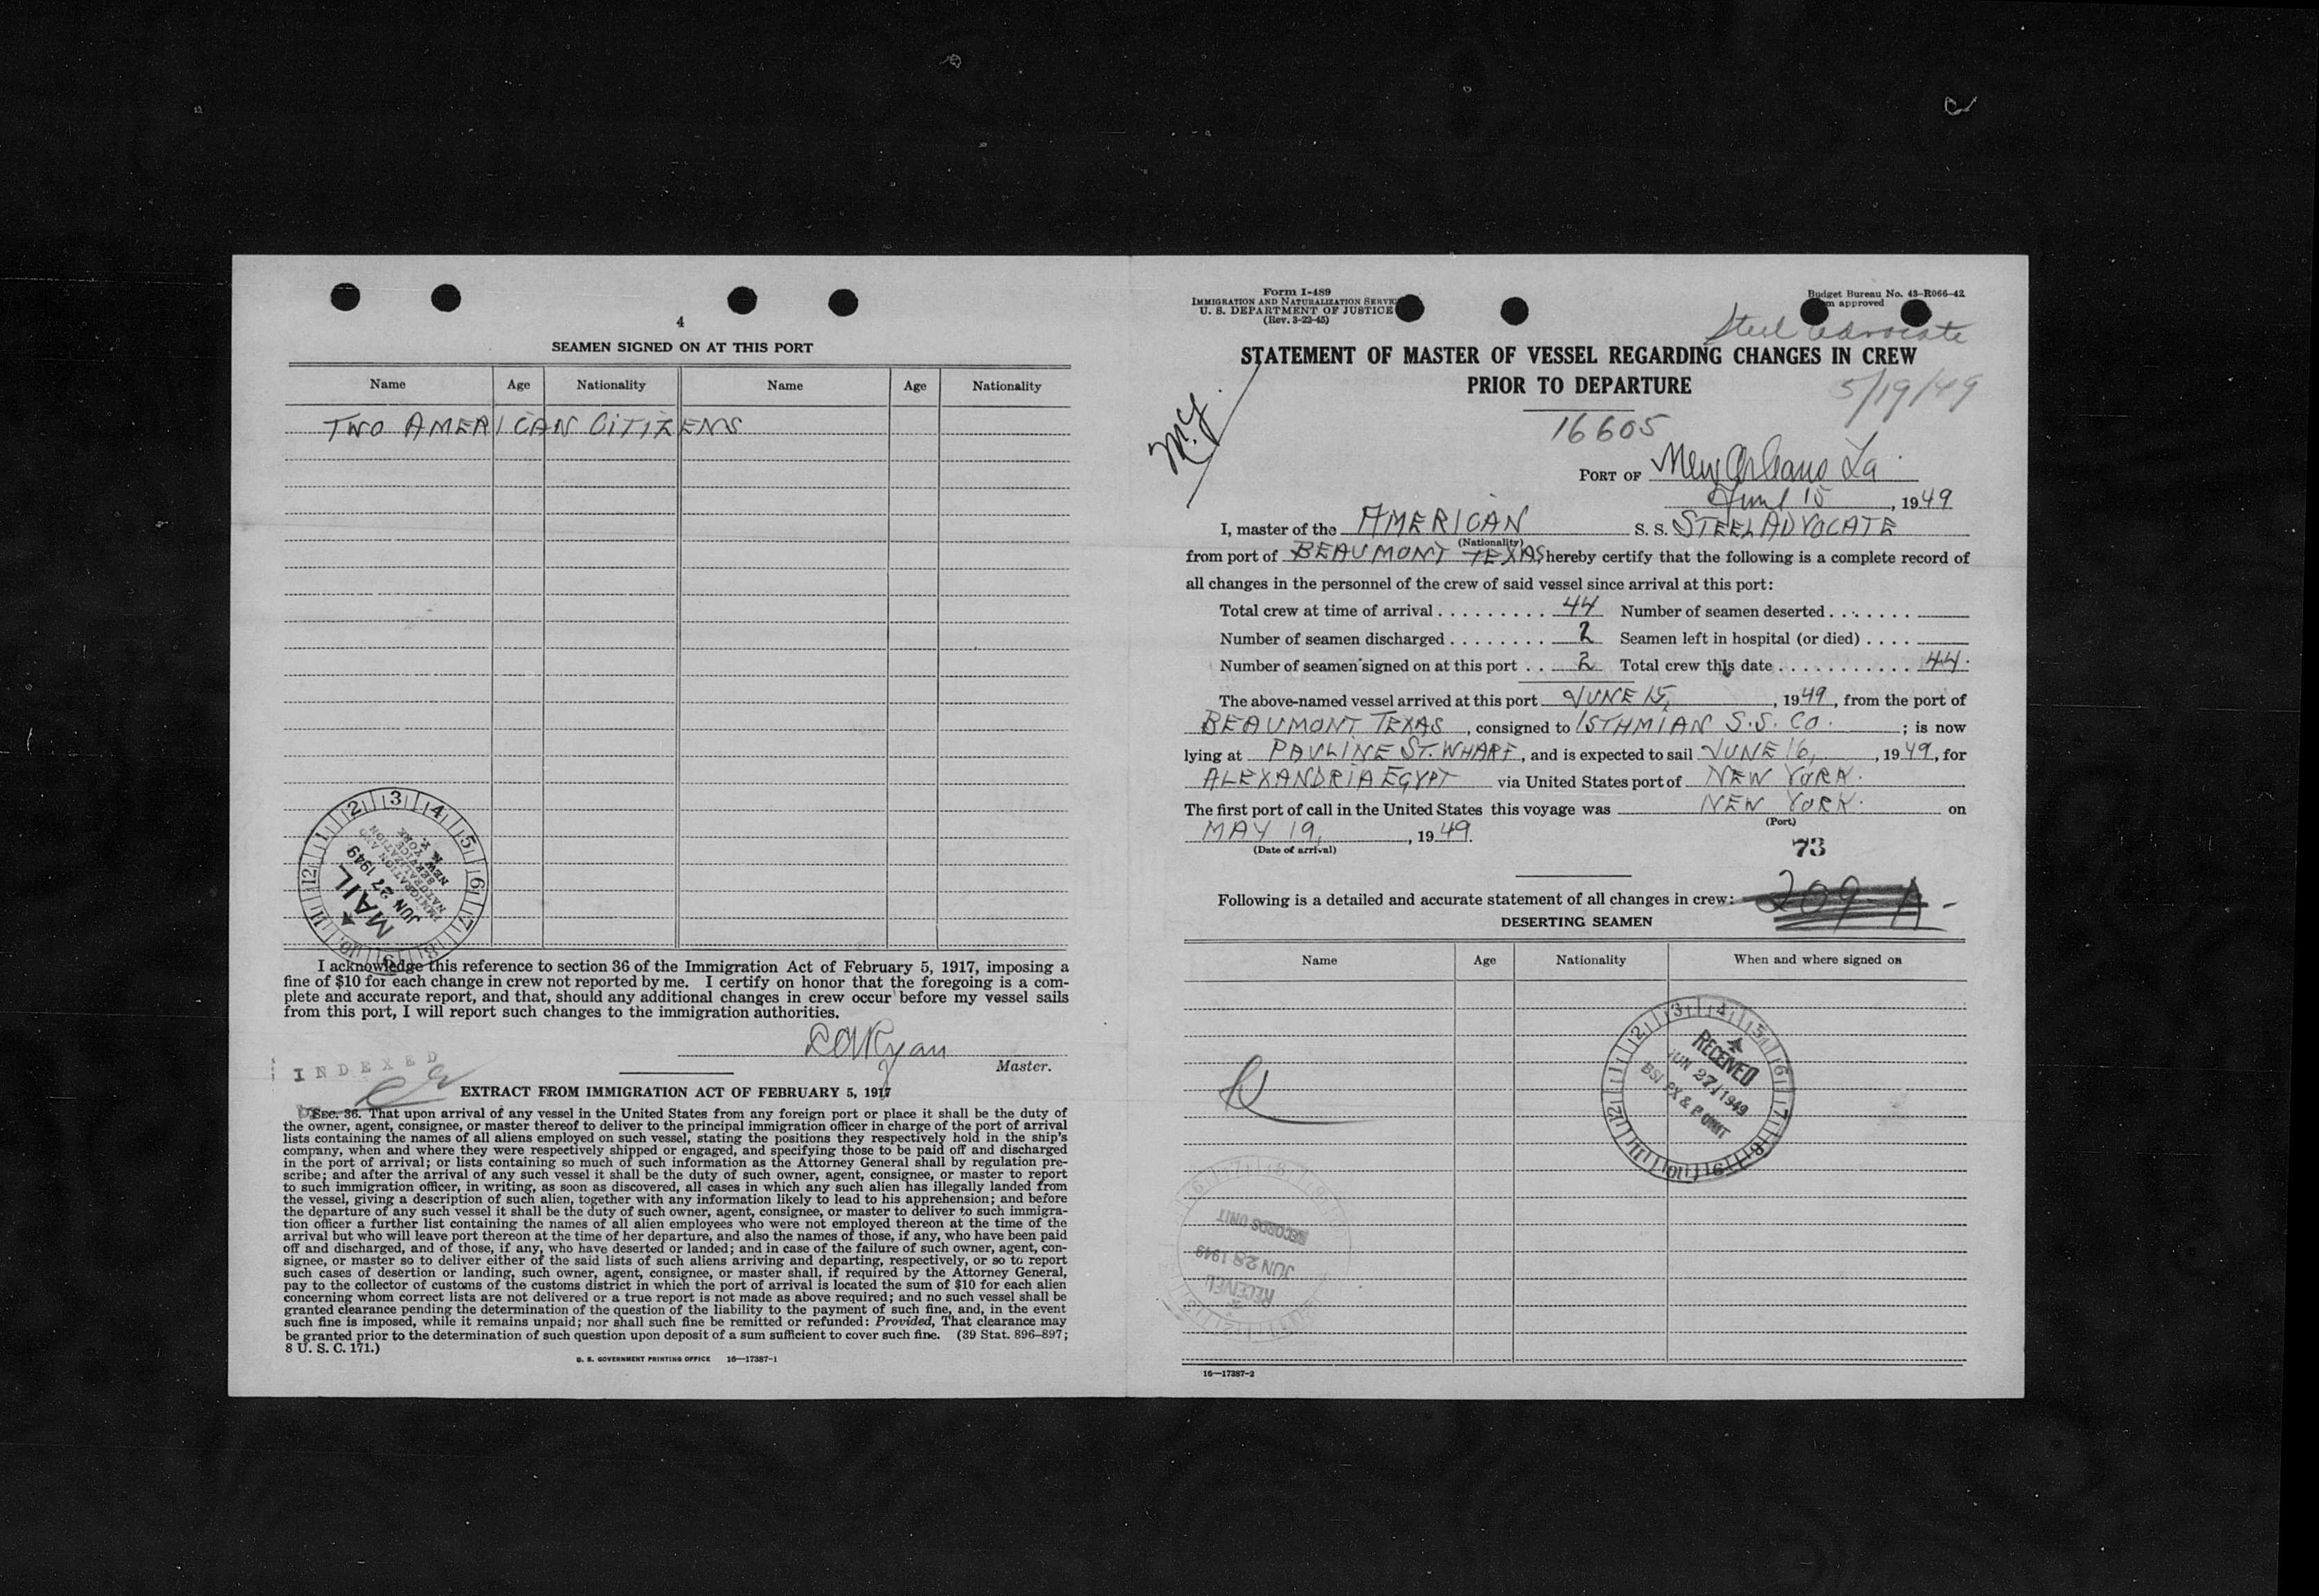 4
SEAMEN SIGNED ON AT THIS PORT
Name Age Nationality Name Age Nationality
TWO AMERICAN CITIZENS
1 2 3 4 5 6 7 8 9 10 11 12
MAIL
JUN 27 1949
IMMIGRATION AND
NATURALIZATION
SERVICE
NEW YORK
N. Y.
I acknowledge this reference to section 36 of the Immigration Act of February 5, 1917, imposing a
fine of $10 for each change in crew not reported by me. I certify on honor that the foregoing is a com-
plete and accurate report, and that, should any additional changes in crew occur before my vessel sails
from this port, I will report such changes to the immigration authorities.
Ryan
Master.
INDEXED
EXTRACT FROM IMMIGRATION ACT OF FEBRUARY 5, 1917
SEC. 36. That upon arrival of any vessel in the United States from any foreign port or place it shall be the duty of
the owner, agent, consignee, or master thereof to deliver to the principal immigration officer in charge of the port of arrival
lists containing the names of all aliens employed on such vessel, stating the positions they respectively hold in the ship's
company, when and where they were respectively shipped or engaged, and specifying those to be paid off and discharged
in the port of arrival; or lists containing so much of such information as the Attorney General shall by regulation pre-
scribe; and after the arrival of any such vessel it shall be the duty of such owner, agent, consignee, or master to report
to such immigration officer, in writing, as soon as discovered, all cases in which any such alien has illegally landed from
the vessel, giving a description of such alien, together with any information likely to lead to his apprehension; and before
the departure of any such vessel it shall be the duty of such owner, agent, consignee, or master to deliver to such immigra-
tion officer a further list containing the names of all alien employees who were not employed thereon at the time of the
arrival but who will leave port thereon at the time of her departure, and also the names of those, if any, who have been paid
off and discharged, and of those, if any, who have deserted or landed; and in case of the failure of such owner, agent, con-
signee, or master so to deliver either of the said lists of such aliens arriving and departing, respectively, or so to report
such cases of desertion or landing, such owner, agent, consignee, or master shall, if required by the Attorney General,
pay to the collector of customs of the customs district in which the port of arrival is located the sum of $10 for each alien
concerning whom correct lists are not delivered or a true report is not made as above required; and no such vessel shall be
granted clearance pending the determination of the question of the liability to the payment of such fine, and, in the event
such fine is imposed, while it remains unpaid; nor shall such fine be remitted or refunded: Provided, That clearance may
be granted prior to the determination of such question upon deposit of a sum sufficient to cover such fine. (39 Stat. 896–897;
8 U. S. C. 171.)
U. S. GOVERNMENT PRINTING OFFICE 16—17387-1
Form I-489
IMMIGRATION AND NATURALIZATION SERVICE
U. S. DEPARTMENT OF JUSTICE
(Rev. 3-22-45)
Budget Bureau No. 43-R066-42
approved
Steel Advocate
STATEMENT OF MASTER OF VESSEL REGARDING CHANGES IN CREW
PRIOR TO DEPARTURE
5/19/49
16605
PORT OF New Orleans La.
June 15, 1949
I, master of the AMERICAN S. S. STEEL ADVOCATE
(Nationality)
from port of BEAUMONT TEXAS, hereby certify that the following is a complete record of
all changes in the personnel of the crew of said vessel since arrival at this port:
Total crew at time of arrival . . . . . . . . . 44 Number of seamen deserted . . . . . . .
Number of seamen discharged . . . . . . . . 2 Seamen left in hospital (or died) . . . .
Number of seamen signed on at this port . . 2 Total crew this date . . . . . . . . . . . 44.
The above-named vessel arrived at this port JUNE 15, , 1949, from the port of
BEAUMONT TEXAS, consigned to ISTHMIAN S.S. CO. ; is now
lying at PAULINE ST. WHARF, and is expected to sail JUNE 16, , 1949, for
ALEXANDRIA EGYPT via United States port of NEW YORK.
The first port of call in the United States this voyage was NEW YORK. on
(Port)
MAY 19, , 1949.
(Date of arrival)
73
Following is a detailed and accurate statement of all changes in crew: 209-A-
DESERTING SEAMEN
Name Age Nationality When and where signed on
1 2 3 4 5 6 7 8 9 10 11 12
RECEIVED
JUN 27 1949
BSI PX & P UNIT
RECEIVED
JUN 28 1949
RECORDS UNIT
16—17387-2